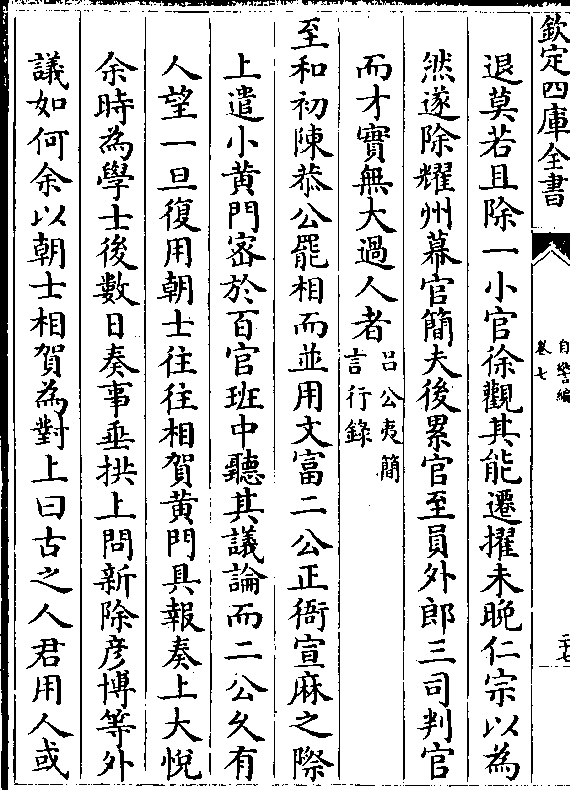 欽定四庫全書
自警編
卷七
二十七
退莫若且除一小官徐觀其能遷擢未晚仁宗以為
然遂除耀州幕官簡夫後累官至員外郎三司判官
而才實無大過人者
呂公夷簡
言行錄
至和初陳恭公罷相而並用文富二公正衙宣麻之際
上遣小黄門宻於百官班中聽其議論而二公乆有
人望一旦復用朝士往往相賀黄門具報奏上大悅
余時為學士後數日奏事垂拱上問新除彦博等外
議如何余以朝士相賀為對上曰古之人君用人或